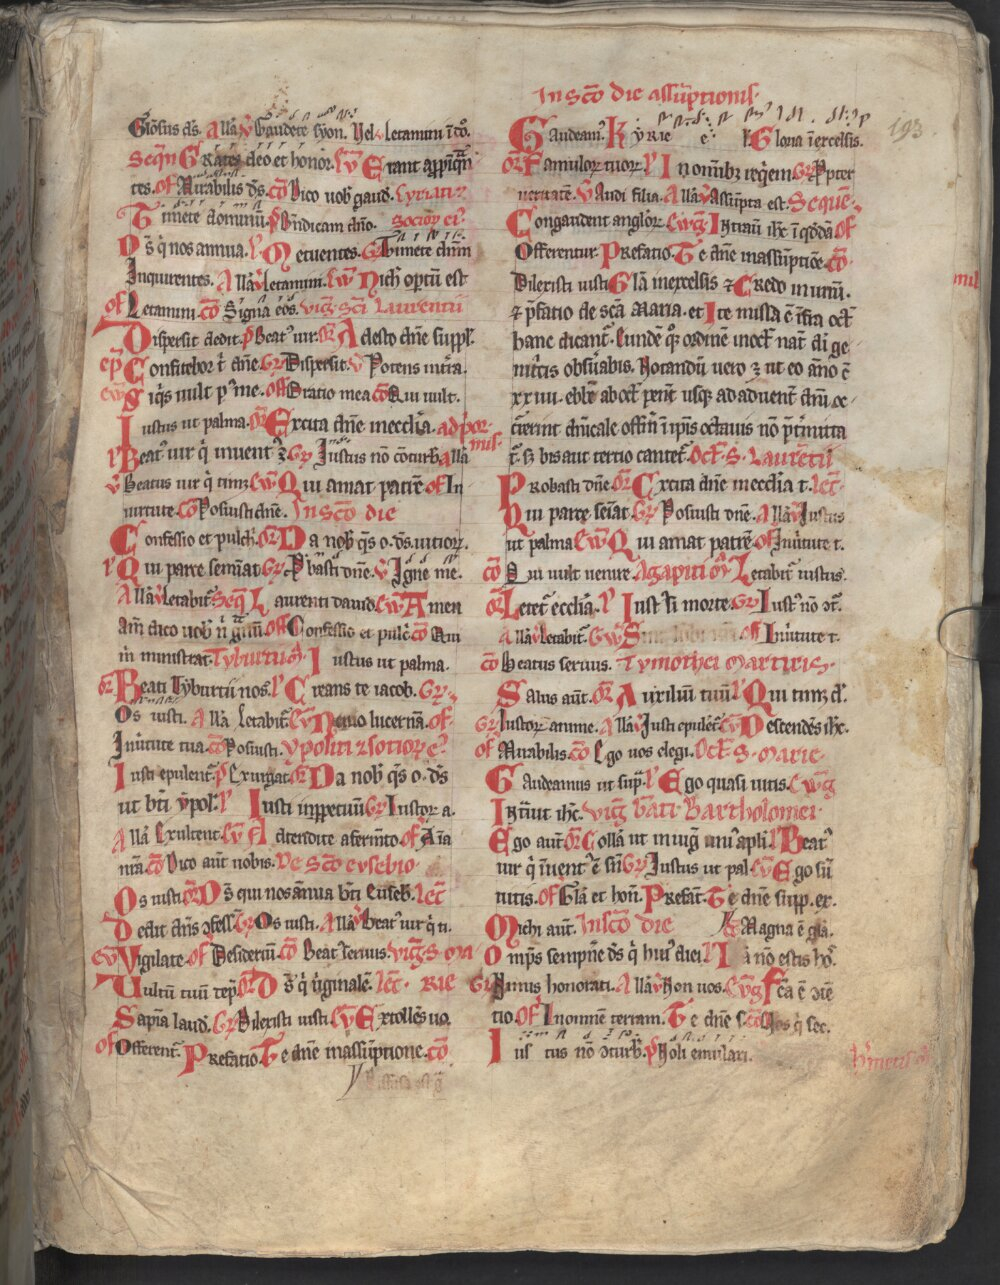 In sc̄o die assūptionis.
193.
Gl̄osus d̄s. Allā ꝟ Gaudete syon. Vel Letamini ī dō.
Seq̄n Grates deo et honor. Eꝟ Erant app̄ īq̄n
tes. Of Mirabilis d̄s. Cō Dico uob̄ gaud. Cyriaci ⁊
Timete dominū. p̄ Bn̄dicam dn̄o. Socioꝝ ei⁹
Ds̄ q̄ nos annua. l' Metuentes. Gr̄ Timete dn̄m
Inquirentes. Allā ꝟ Letamini. Eꝟ Nich̄ optū est
Of Letamini. Cō Signa eos. Viḡ sc̄i Laurentii
Dispersit dedit. p̄ Beat⁹ uir. Or̄ Adesto dn̄e suppl̄.
ep̄ Confitebor t̄ dn̄e. Gr̄ Dispersit. ꝟ Potens in t̄ra.
Eꝟ Siq̄s uult p⁹ me. Off Oratio mea Cō Qui uult.
Iustus ut palma. Or̄ Excita dn̄e in eccl̄ia. ad p̄or
mis.
l' Beat⁹ uir q̄ inuent⁹ ē Gr̄ Iustus nō cōturb̄ Allā
ꝟ Beatus uir q̄ timꝫ Eꝟ Qui amat patrē Of In
uirtute. Cō Posuisti dn̄e. In sc̄o die
Confessio et pulch̄. Or̄ Da nob̄ q̄s o. ds̄ uitioꝝ.
l' Qui parce seminat Gr̄ P̄basti dn̄e. ꝟ Igne me.
Allā ꝟ Letabit̄. Seq̄ Laurenti dauid. Eꝟ Amen
am̄ dico uob̄ n̄ gnū Off Confessio et pulc̄ Cō Qui
m̄ ministrat. Tyburtii m̄. Iustus ut palma.
Or̄ Beati Tyburtii nos. l' Creans te iacob. Gr̄
Os iusti. Allā Letabit̄ Eꝟ Nemo lucernā. Of
In uirtute tua. Cō Posuisti. Ypoliti ⁊ sotioꝝ e⁹
Iusti epulent̄. p̄ Exurgat. Or̄ Da nob̄ q̄s o. ds̄
ut bt̄i ypol̄. l' Iusti inp̄petuū Gr̄ Iustoꝝ a.
Allā Exultent. Eꝟ Attendite a fermto. Of Aīa
nrā Cō Dico aut̄ uobis. De sc̄o eusebio
Os iusti Or̄ Ds̄ qui nos annua bt̄i Euseb̄. Lec̄
Dedit dn̄s ꝯfess̄ Gr̄ Os iusti. Allā ꝟ Beat⁹ uir q̄ ti.
Eꝟ Vigilate. Of Desideriū Cō Beat⁹ seruus. Viḡ S. Ma
Uultū tuū dep̄. Or̄ Ds̄ q̄ uirginalē. Lec̄. rie
Sap̄ia laud̄. Gr̄ Dilexisti iusti Eꝟ Extollēs uo.
Of Offerent̄. Prefatio Te dn̄e in assūptione. Cō
Gaudeam⁹. Kyrie e⁹ Gloria ī excelsis.
Or̄ Famuloꝝ tuoꝝ. l' In omnibꝫ req̄em. Gr̄ Ppter
ueritatē. ꝟ Audi filia. Allā ꝟ Assūpta est. Sequē
Congaudent angl̄oꝝ. Eꝟḡ Intrauit ih̄c ī q̄dda Of
Offerentur. Prefatio Te dn̄e in assūptiōe. Cō
Dilexisti iusti Gl̄a in excelsis ⁊ Credo in unū.
⁊ p̄fatio de sc̄a Maria. et Ite missa ē ifra oct̄
hanc dicant̄. Eundē q̄ꝫ ordinē in oct̄ nat̄ di ge
nit̄cis obs̄uabis. Notandū uero ꝫ ut eo āno ē
xxiiii. ebl̄e ab oct̄ pent̄ usq̄ꝫ ad aduent̄ dn̄i ce
ciērint dn̄icale offm̄ ī ip̄is octauis nō p̄t̄mitta
t̄. sꝫ bis aut tertio cantet̄. Oct̄. S. Laurētii
Probasti dn̄e. Or̄ Excita dn̄e in eccl̄ia t. Lec̄
Qui parce semat̄ Gr̄ Posuisti dn̄e. Allā ꝟ Iustus
ut palma Eꝟ Qui amat patrē. Of In uirtute t.
Cō Qui uult uenire. Agapiti m̄ Letabit̄ iustus.
Or̄ Letet̄ eccl̄ia. l' Iust⁹ si morte. Gr̄ Iust⁹ nō ꝯt̄.
Allā ꝟ Letabit̄. Eꝟ Of In uirtute t.
Cō Beatus seruus. Tymothei Martiris.
Salus aut̄. Or̄ Auxiliū tuū l' Qui timꝫ d̄.
Gr̄ Iustoꝝ anime. Allā ꝟ Iusti epulēt̄ Eꝟ Descendēs ih̄c.
Of Mirabilis. Cō Ego uos elegi. Oct̄. S. Marie.
Gaudeamus ut sup̄. l' Ego quasi uitis. Eꝟḡ
Intᷓuit ih̄c. Viḡ bāti Bartholomei.
Ego aut̄ Or̄ Colla ut in uiḡ uni⁹ apl̄i l' Beat⁹
uir q̄ īuent⁹ ē sn̄ Gr̄ Iustus ut pal Eꝟ Ego sū
uitis. Of Gl̄a et hon̄. Prefat̄. Te dn̄e supp. ex.
Michi aut̄. In sc̄o die Magna ē gl̄a.
Omp̄s sempn̄e ds̄ q̄ hui⁹ diei l' Iā nō estis ho⁹.
Gr̄ Nimis honorati. Allā ꝟ Non uos. Eꝟḡ Fca ē ꝯtē
tio. Of In omnē terram. Te dn̄e s Cō Uos q̄ sec̄.
Iustus nō ꝯturb̄. p̄ Noli emulari.